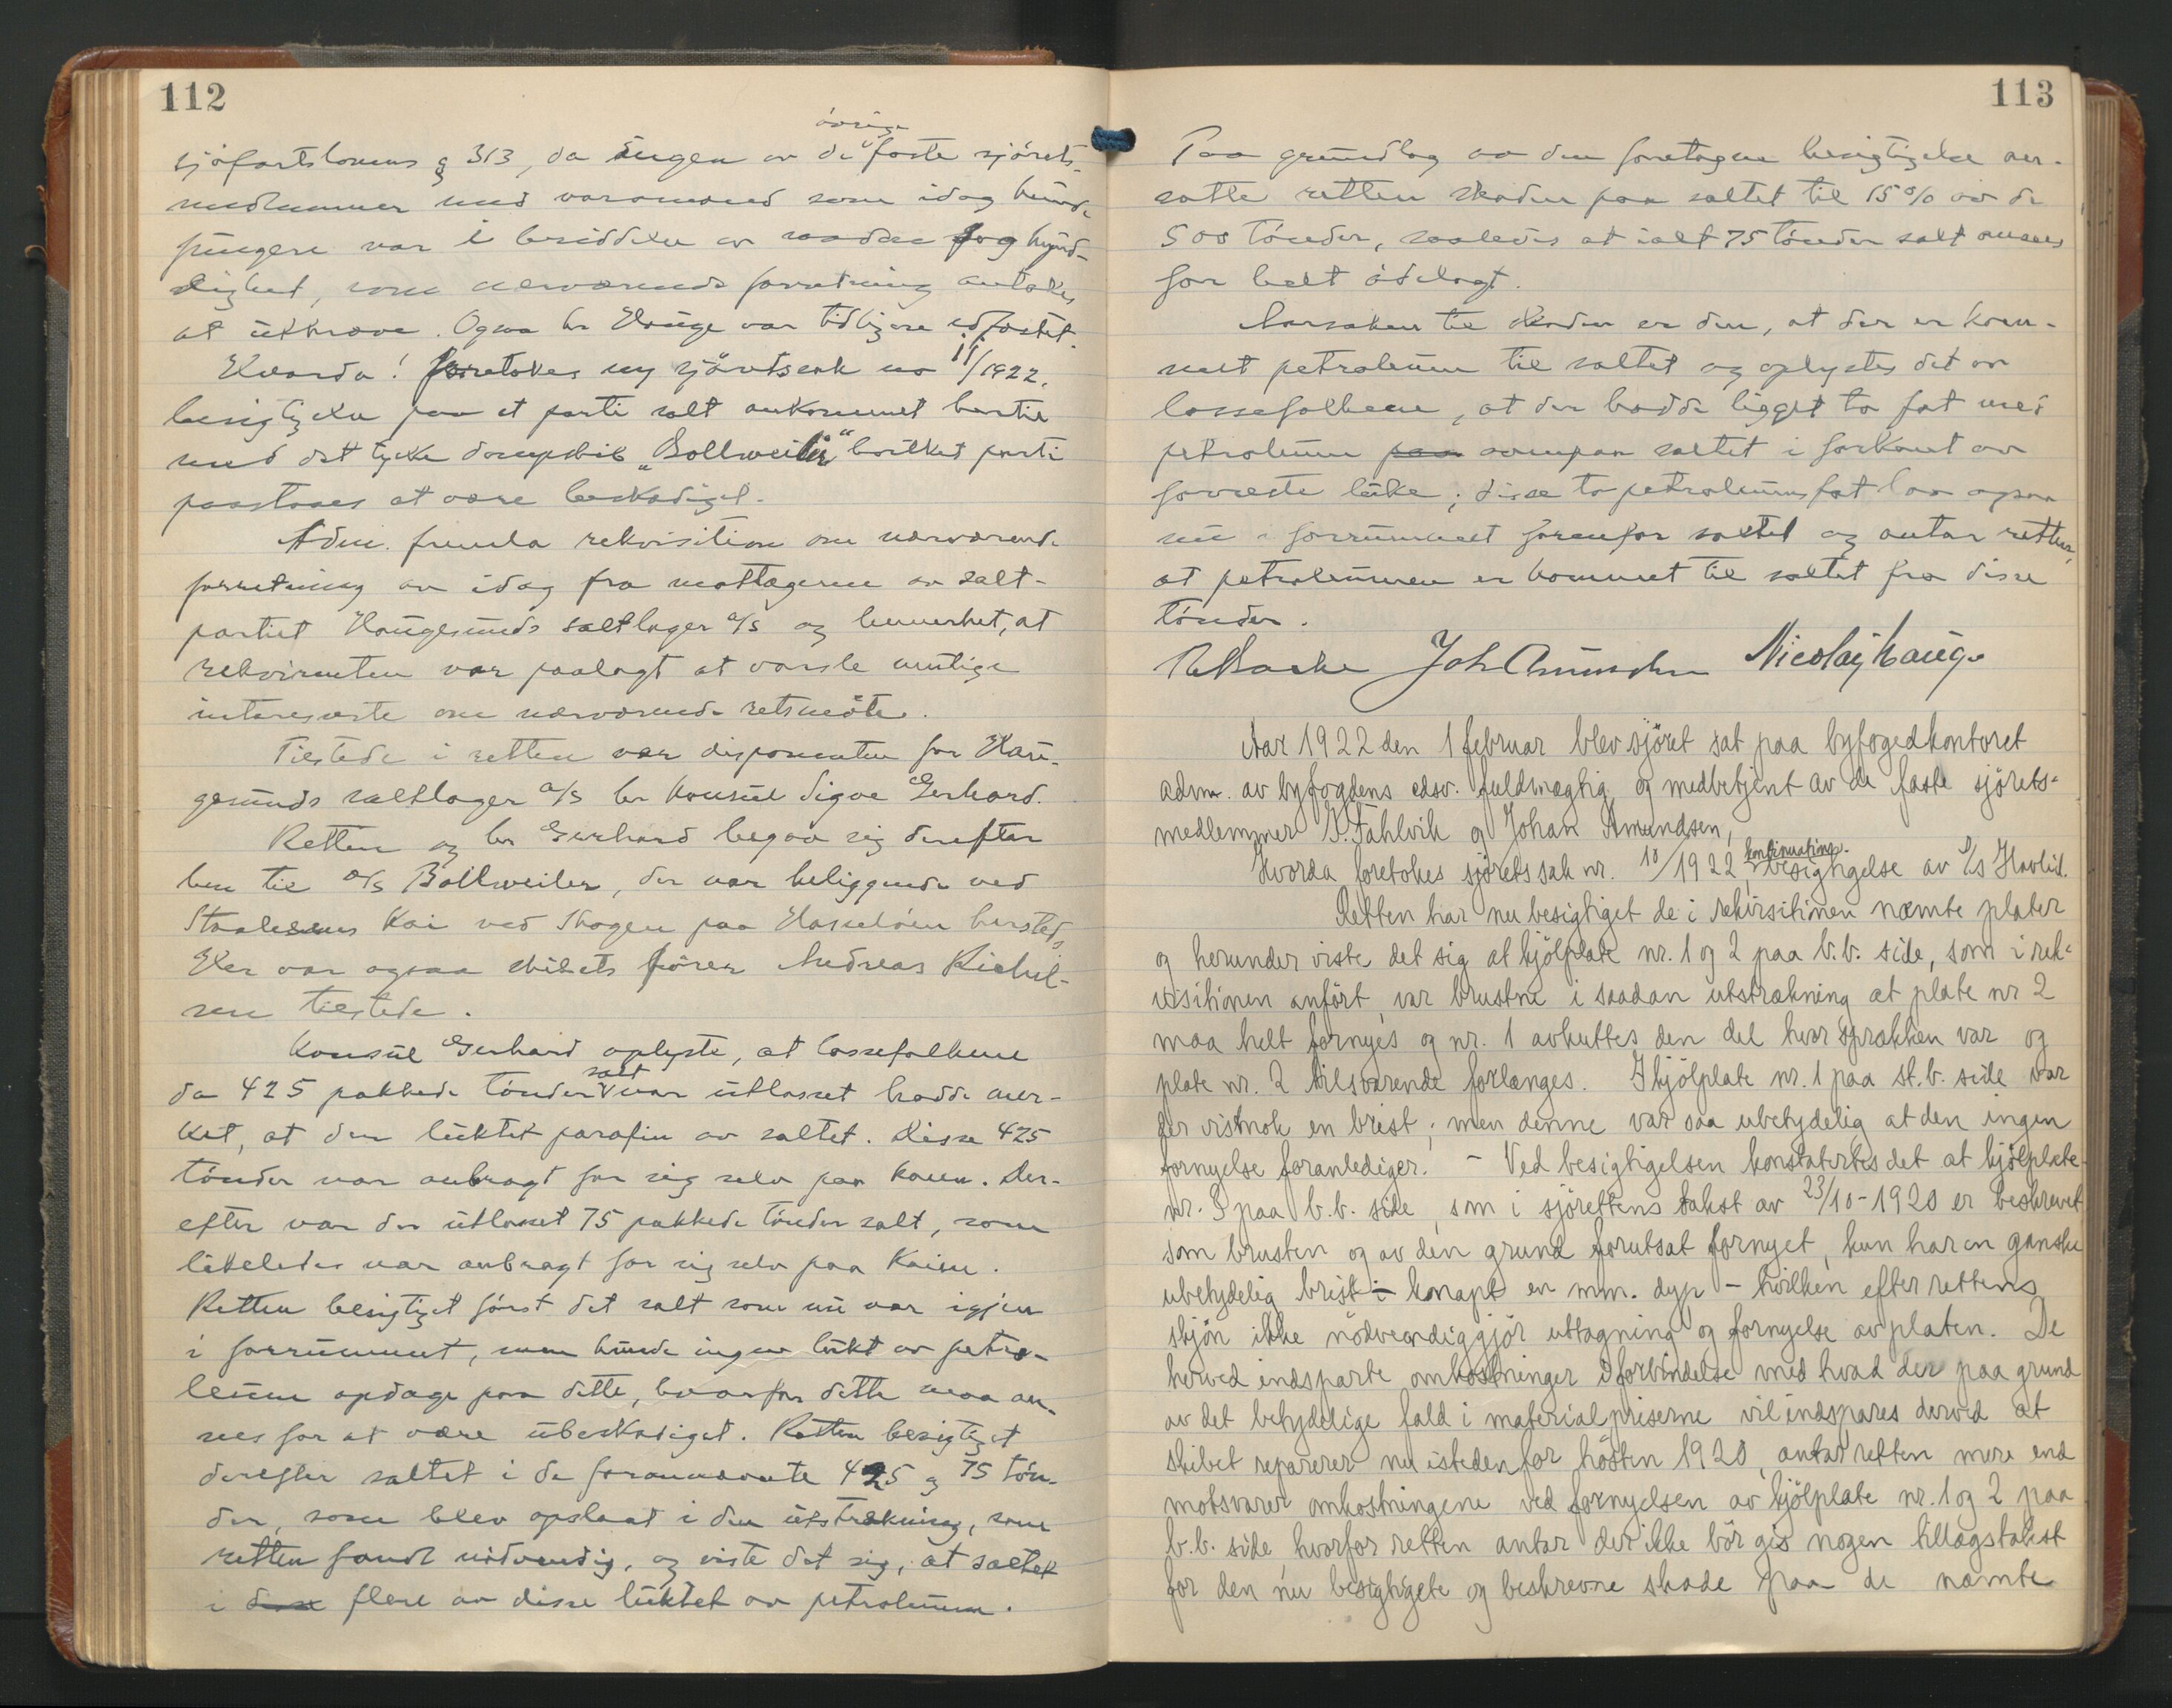 112
övrige
sjöfartslovens § 313, da ingen av de faste sjörets-
medlemmer med varamænd som idag kunde
fungere var i besiddelse av saadan fagkynd-
dighet, som nærværende forretning antokes
at utkræve. Ogsaa hr Hauge var tidligere edfæstet.
Hvorda! foretokes ny sjöretssak no 11/1922,
besigtigelse paa et parti salt ankommet hertil
med det tyske dampskib "Bollweiler" hvilket parti
paastaaes at være beskadiget.
Adm. fremla rekvisition om nærværende
forretning av idag fra mottageren av salt-
partiet Haugesunds saltlager a/s og bemerket, at
rekvirenten var paalagt at varsle mulige
interesserte om nærværende retsmöte.
Tilstede i retten var disponenten for Hau-
gesunds saltlager a/s hr konsul Sigva Gerhard.
Retten og hr Gerhard begav sig derefter
hen til D/s Bollweiler, der var beliggende ved
Staalesens Kai ved Skogen paa Hasselöen hersteds,
Her var ogsaa skibets förer Andreas
sen tilstede.
Konsul Gerhard oplyste, at lossefolkene
salt
da 425 pakkede tönder var utlosset hadde mer-
ket, at den luktet parafin av saltet. Disse 425
tönder var anbragt for sig selv paa kaien. Der-
efter var der utlosset 75 pakkede tönder salt, som
likeledes var anbragt for sig selv paa Kaien.
Retten besigtiget först det salt som nu var igjen
i forrummet, men kunde ingen lukt av petro-
leum opdage paa dette, hvorfor dette maa an-
sees for at være ubeskadiget. Retten besigtiget
derefter saltet i de forannævnte 425 og 75 tön-
der, som blev opslaat i den utstrækning, som
retten fandt nödvendig, og viste det sig, at saltet
i disse flere av disse luktet av petroleum.
113
Paa grundlag av den foretagne besigtigelse an-
satte retten skaden paa saltet til 15% av de
500 tönder, saaledes at ialt 75 tönder salt ansees
for helt ödelagt.
Aarsaken til skaden er den, at der er kom-
met petroleum til saltet og oplystes det av
lossefolkene, at der hadde ligget to fat med
petroleum paa ovenpaa saltet i forkant av
forreste luke; disse to petroleumsfat laa ogsaa
nu i forrummet forenfor saltet og antar retten,
at petroleumen er kommet til saltet fra disse
tönder.
Joh Amundsen Nicolay Hauge
Aar 1922 den 1 februar blev sjöret sat paa byfogedkontoret
adm. av byfogdens edsv. fuldmægtig og medbetjent av de faste sjörets-
medlemmer T. Fahlvik og Johan Amundsen,
kontinuations-
Hvorda foretokes sjöretssak nr. 10/1922, besigtigelse av D/s Havlid.
Retten har nu besigtiget de i rekvisitionen nævnte plater
og herunder viste det sig at kjölplate nr. 1 og 2 paa b.b. side, som i rek-
visitionen anfört, var brustne i saadan utstrækning at plate nr 2
maa helt fornyes og nr. 1 avkuttes den del hvor sprækken var og
plate nr. 2 tilsvarende forlænges. I kjölplate nr. 1 paa st.b. side var
der vistnok en brist; men denne var saa ubetydelig at den ingen
fornyelse foranlediger. - Ved besigtigelsen konstatertes det at kjölplate
nr. 3 paa b.b. side, som i sjörettens takst av 23/10-1920 er beskrevet
som brusten og av den grund forutsat fornyet, kun har en ganske
ubetydelig brist i- knapt en mm. dyp - hvilken efter rettens
skjön ikke nödvendiggjör uttagning og fornyelse av platen. De
herved indsparte omkostninger i forbindelse med hvad der paa grund
av det betydelige fald i materialpriserne vil indspares derved at
skibet reparerer nu istedenfor hösten 1920, antar retten mere end
motsvarer omkostningene ved fornyelsen av kjölplate nr. 1 og 2 paa
b.b. side hvorfor retten antar der ikke bör gis nogen tillægstakst
for den nu besigtigete og beskrevne skade paa de nævnte